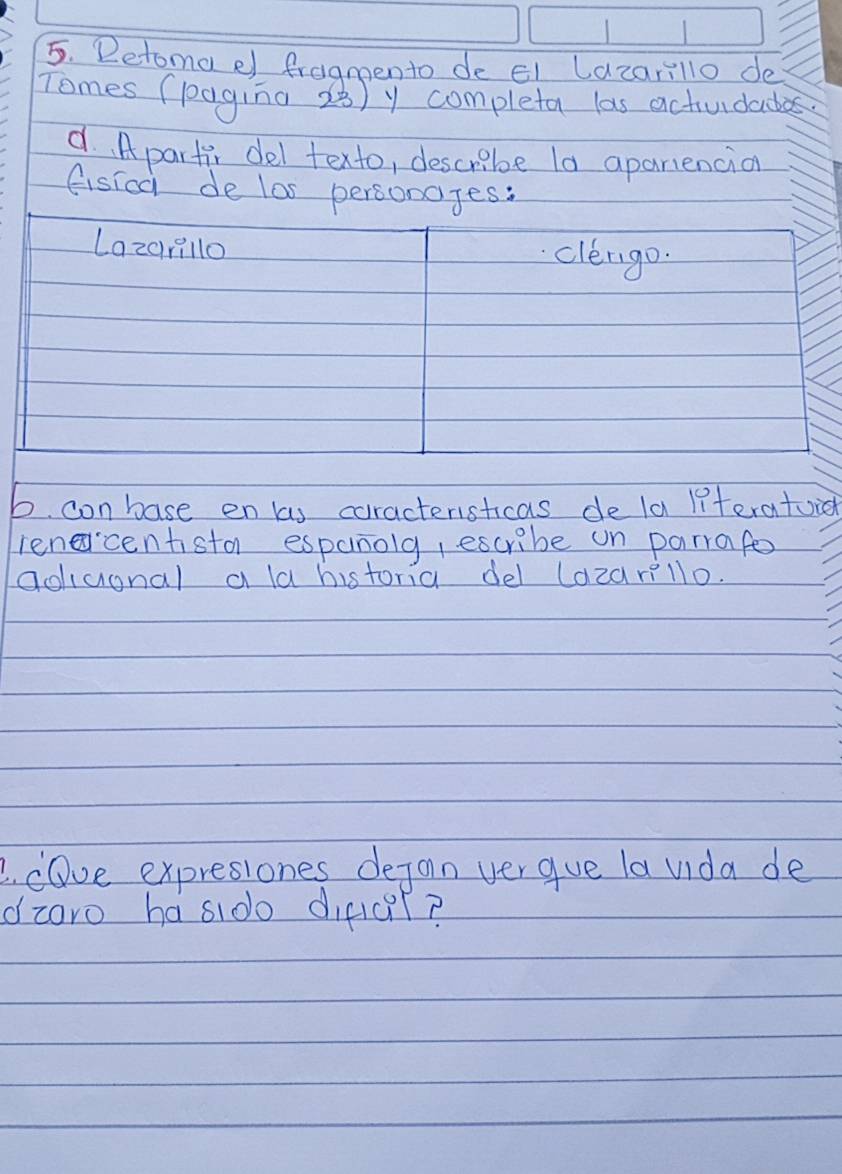 5. Retoma el fragmento de El Lazarillo de
Tomes (pagina 23) y completa las actividades.
a. A partir del texto, describe la apariencia
fisica de los personajes:
Lazarillo
clérigo.
b. con base en las caracteristicas de la literatura
renacentista española, escribe un parrafo
adicional a la historia del Lazarillo.
¿Que expresiones dejan ver que la vida de
azaro ha sido dificil?